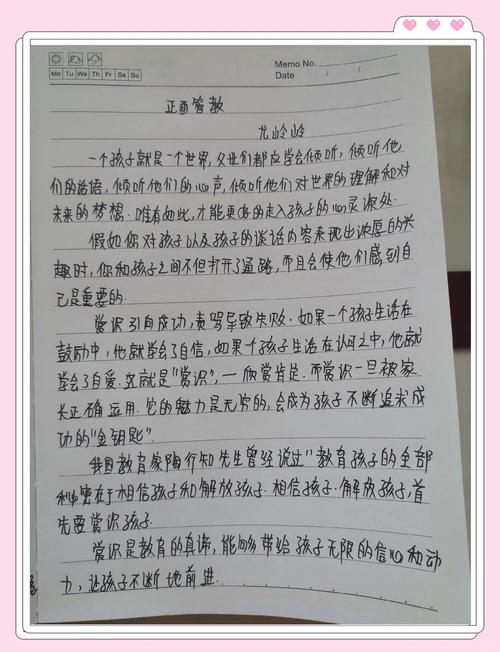 Memo No.
Mo Tu We Th Fr Sa Su
Date / /
正面管教
尤岭岭
一个孩子就是一个世界,父母们都应学会倾听,倾听他
们的话语,倾听他们的心声,倾听他们对世界的理解和对
未来的梦想.唯有如此,才能更好的走入孩子的心灵深处.
假如你对孩子以及孩子的谈话内容表现出浓厚的兴
趣时,你和孩子之间不但打开了通路,而且会使他们感到自
己是重要的.
赏识引向成功,责骂导致失败.如果一个孩子生活在
鼓励中,他就学会了自信,如果一个孩子生活在认可之中,他就
学会了自爱.这就是"赏识",一欣赏肯定.而赏识一旦被家
长正确运用.它的魅力是无穷的,会成为孩子不断追求成
功的"金钥匙".
我国教育家陶行知先生曾经说过"教育孩子的全部
秘密在于相信孩子和解放孩子.相信孩子.解放孩子,首
先要赏识孩子.
赏识是教育的真谛,能够带给孩子无限的信心和动
力,让孩子不断地前进.